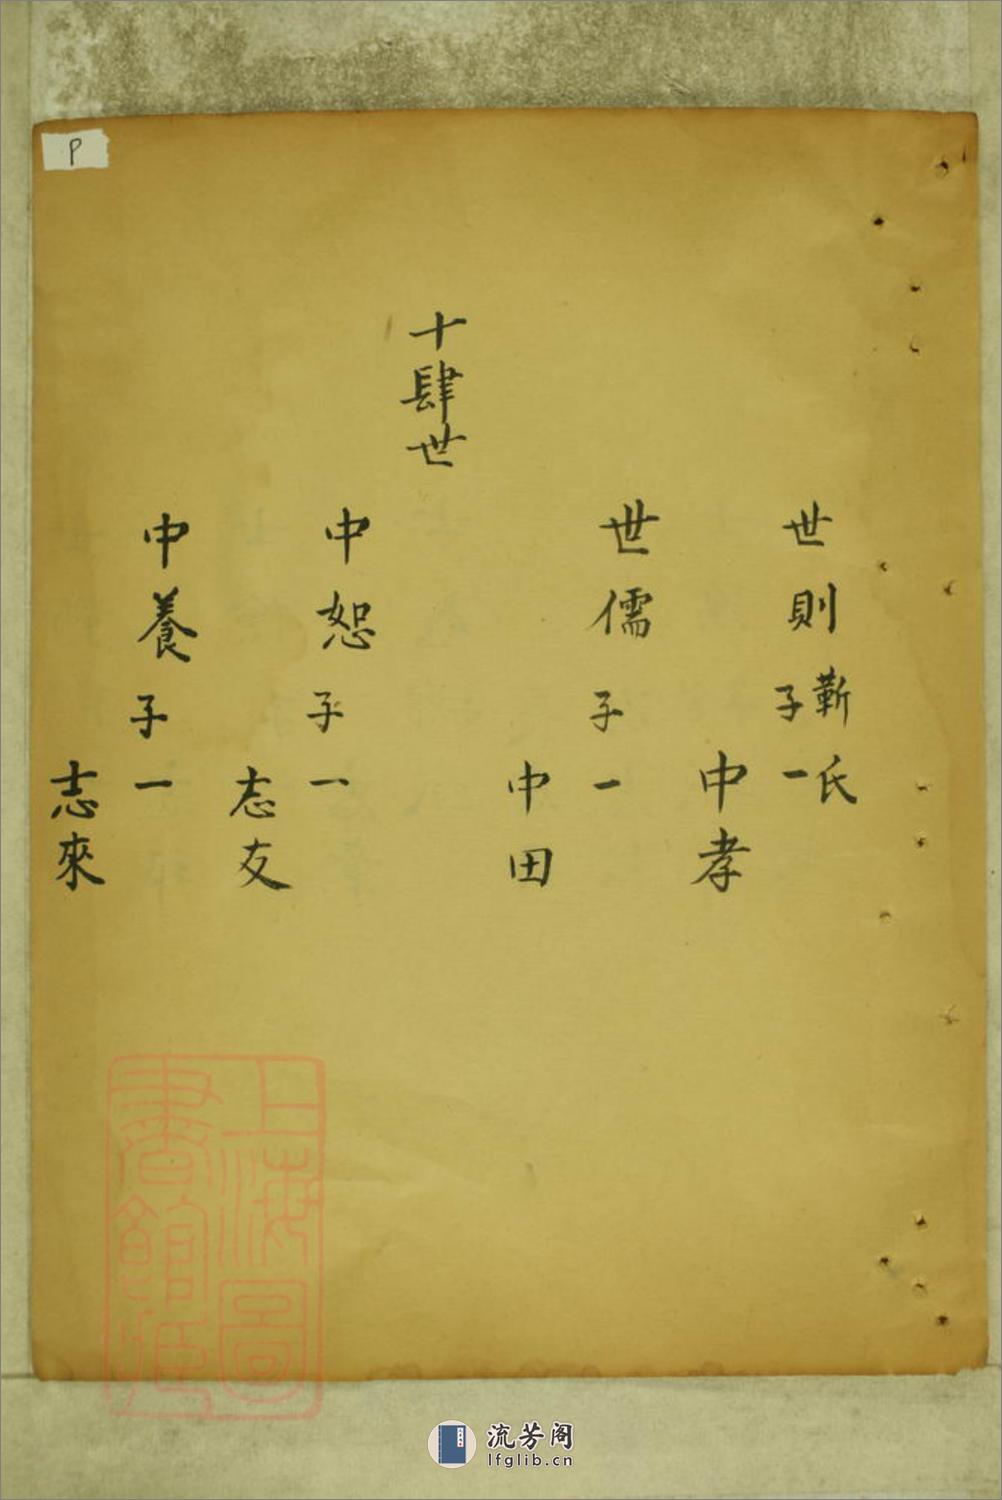 世則 靳氏
子一
中孝
世儒 子一
中田
十肆世
中恕 子一
志友
中養 子一
志來
P
上海圖書館藏
流芳阁
lfglib.cn